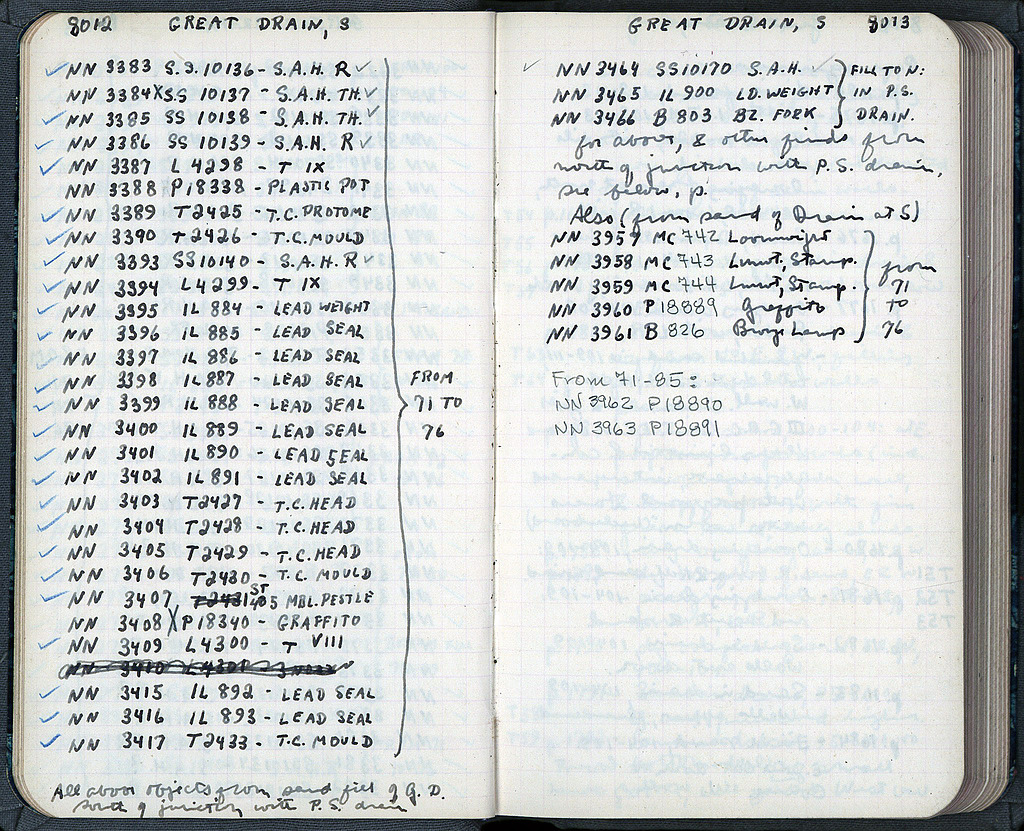 8012 GREAT DRAIN, S
✓ NN 3383 S.S. 10136 - S.A.H. R ✓
NN 3384 X SS 10137 - S.A.H. TH. ✓
✓ NN 3385 SS 10138 - S.A.H. TH. ✓
✓ NN 3386 SS 10139 - S.A.H. R ✓
✓ NN 3387 L 4298 - T IX
NN 3388 P 18338 - PLASTIC POT
✓ NN 3389 T 2425 - T.C. PROTOME
✓ NN 3390 T 2426 - T.C. MOULD
✓ NN 3393 SS 10140 - S.A.H. R ✓
✓ NN 3394 L 4299 - T IX
✓ NN 3395 IL 884 - LEAD WEIGHT
✓ NN 3396 IL 885 - LEAD SEAL
✓ NN 3397 IL 886 - LEAD SEAL
✓ NN 3398 IL 887 - LEAD SEAL
✓ NN 3399 IL 888 - LEAD SEAL
✓ NN 3400 IL 889 - LEAD SEAL
✓ NN 3401 IL 890 - LEAD SEAL
✓ NN 3402 IL 891 - LEAD SEAL
✓ NN 3403 T 2427 - T.C. HEAD
✓ NN 3404 T 2428 - T.C. HEAD
✓ NN 3405 T 2429 - T.C. HEAD
✓ NN 3406 T 2430 - T.C. MOULD
✓ NN 3407 T 2431 ST 405 MBL. PESTLE
NN 3408 X P 18340 - GRAFFITO
✓ NN 3409 L 4300 - T VIII
NN 3410 L 4301
✓ NN 3415 IL 892 - LEAD SEAL
✓ NN 3416 IL 893 - LEAD SEAL
✓ NN 3417 T 2433 - T.C. MOULD
FROM
71 TO
76
All above objects from sand fill of G.D.
south of junction with P.S. drain
GREAT DRAIN, S 8013
✓ NN 3464 SS 10170 S.A.H. ✓
NN 3465 IL 900 LD. WEIGHT
NN 3466 B 803 BZ. FORK
FILL TO N:
IN P.S.
DRAIN.
for above, & other finds from
north of junction with P.S. drain,
see below, p.
Also (from sand of Drain at S)
NN 3957 MC 742 Loomweight
NN 3958 MC 743 Lmwt, Stamp.
NN 3959 MC 744 Lmwt, Stamp.
NN 3960 P 18889 Graffito
NN 3961 B 826 Bronze Lamp
from
71
to
76
From 71-85:
NN 3962 P 18890
NN 3963 P 18891